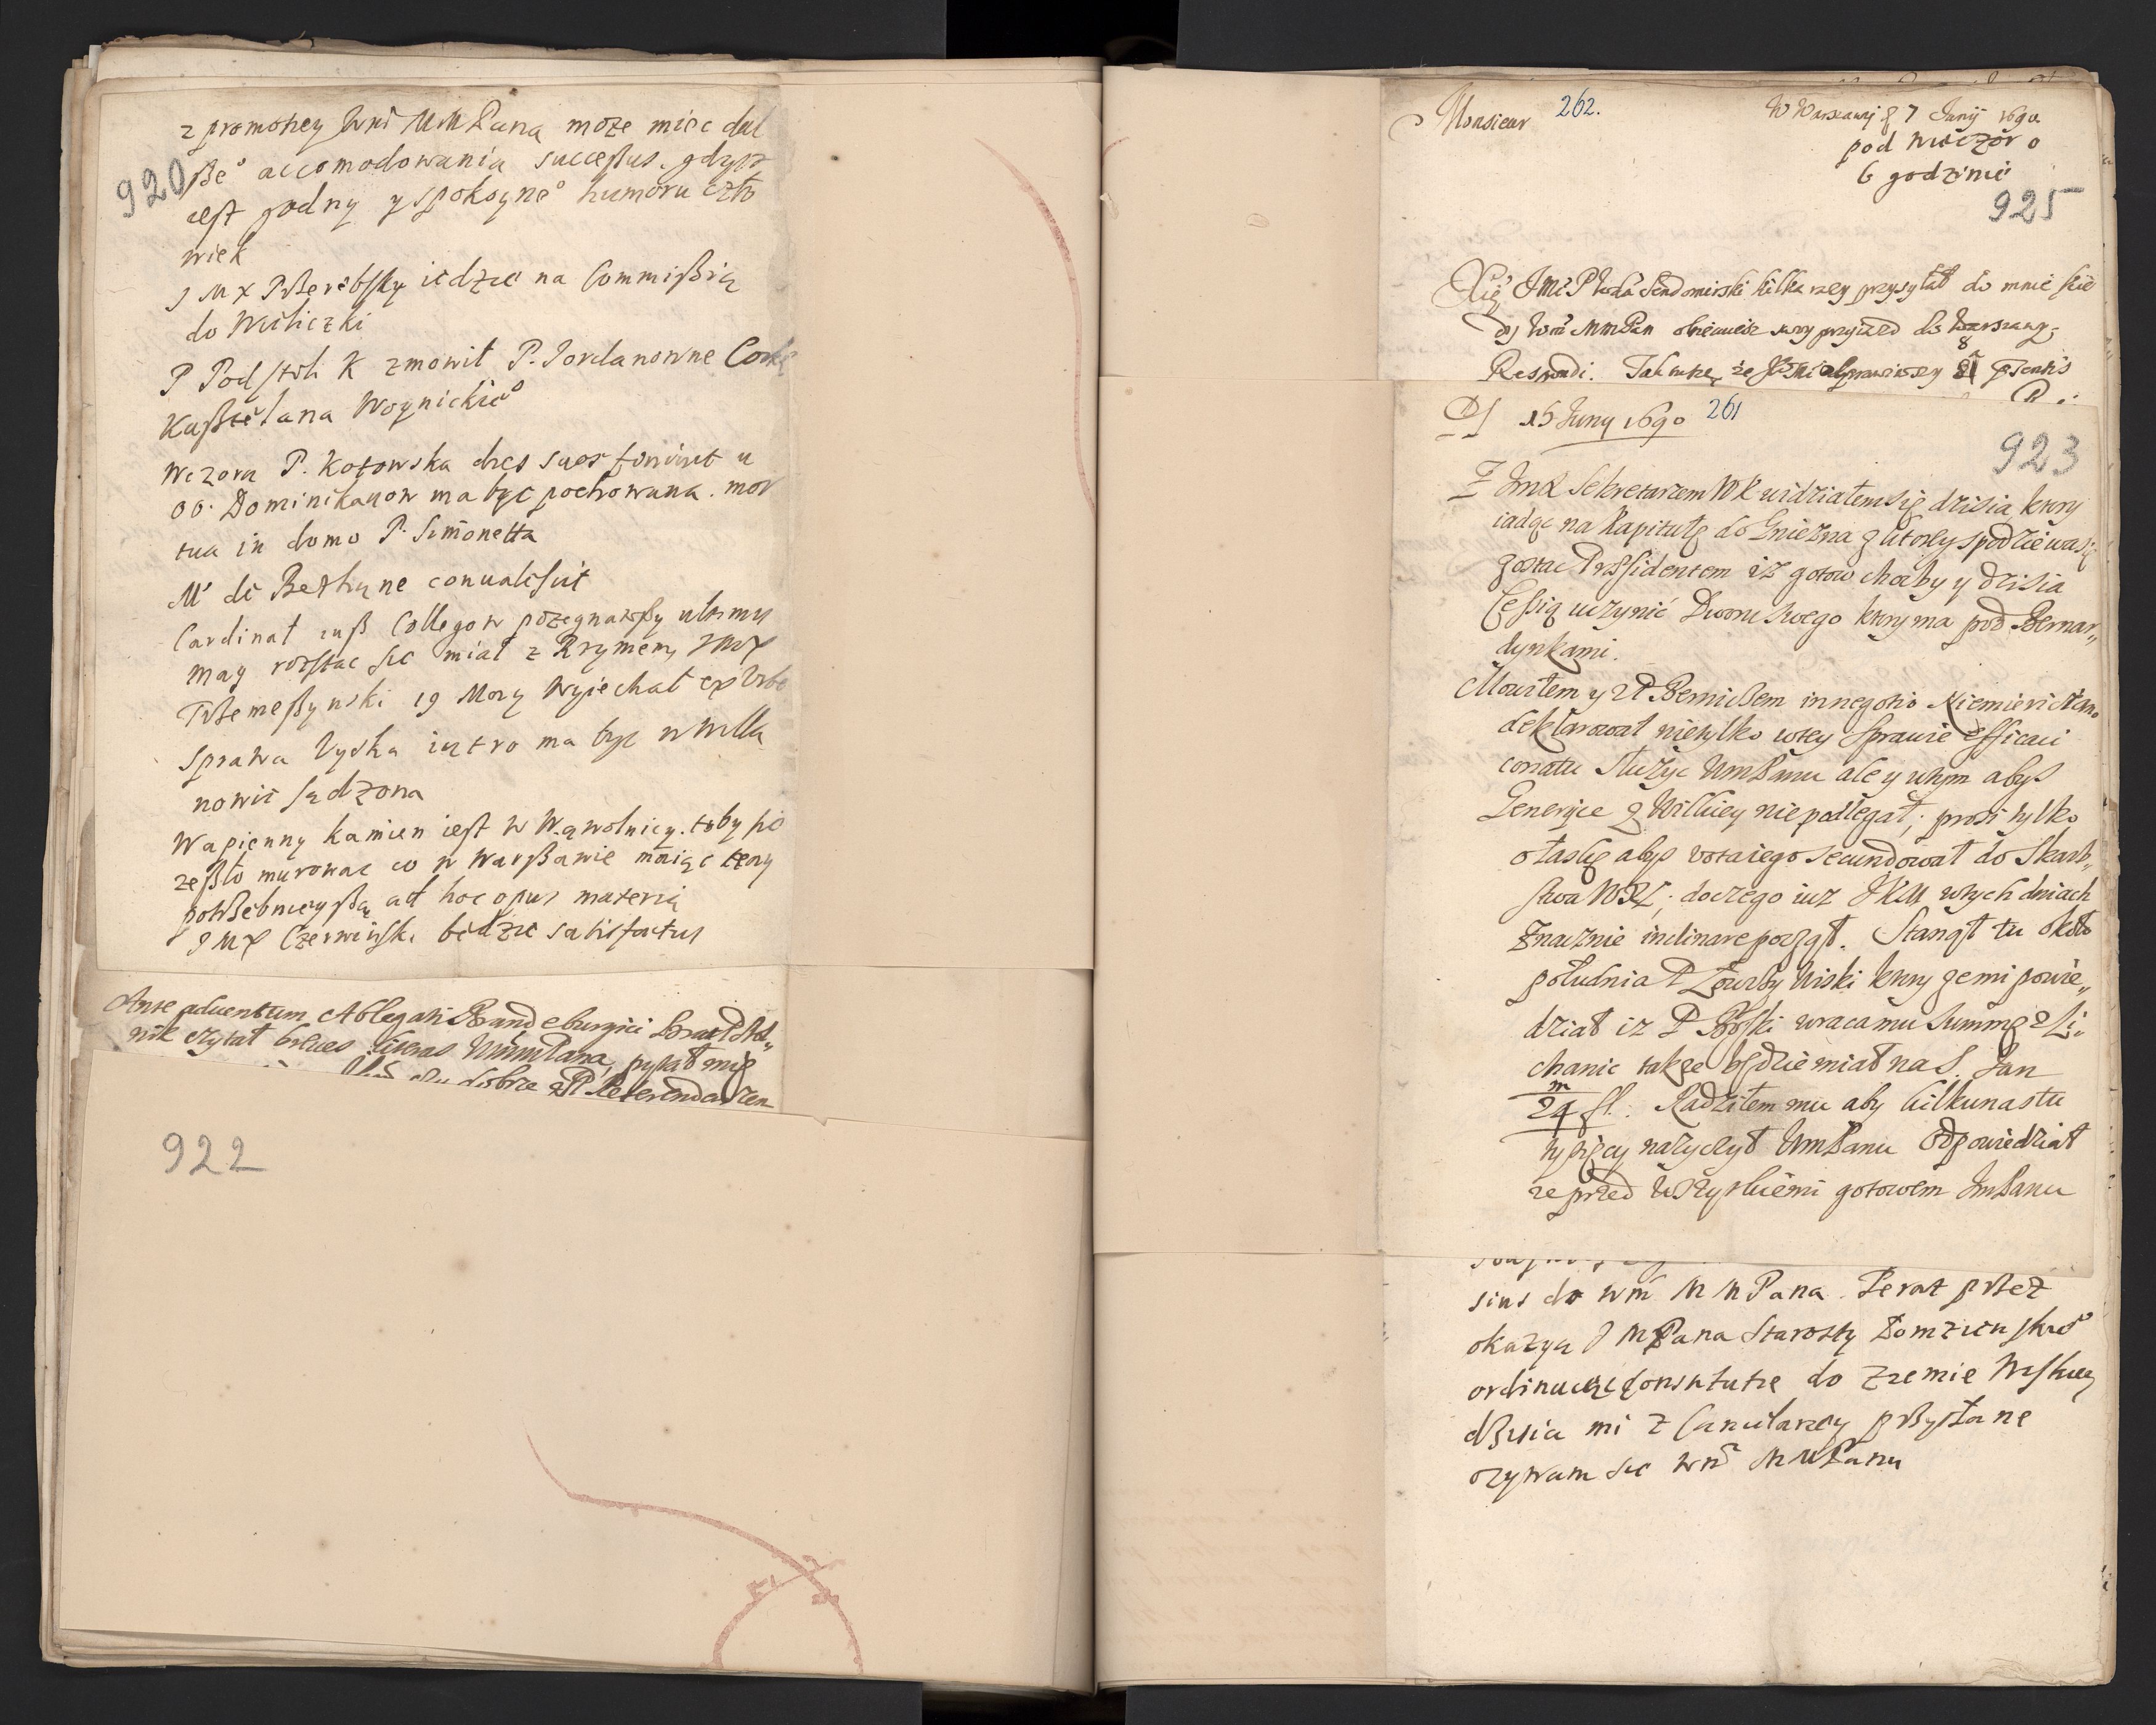 920
z promohey Wmi MMPana może miec dal
ße° accomodowania successus. gdysz
iest godny y spokoyne° humoru czło
wiek
J M X Pßerębsky iedzie na Commißią
do Wieliczki
P Podstoli K zmowił P. Jordanowne Corke
Kaßtelana Woynickie°
Wczora P. Kotowska dies suos finivit u
OO. Dominikanow ma byc pochowana. mor
tua in domo P. Simonetta
Mr de Bethune convaluit
Cardinał iuß Collegow pożegnawßy ultimis
May rozstac sie miał z Rzymem, JMX
Tßemeßynski 19 May wyiechał ex Urbe
Sprawa Łyska iutro ma byc w Willa
nowie sądzona
Wapienny kamien iest w Wąwolnicy. toby sie
zeßło murowac co w Warßawie maiąc
potßebnieyßą ad hoc opus materią
J M X Czerwinski bedzie satisfactus
Ante adventum Ablegati Brandeburgici
nik czytał breves literas WmmPana, pytał mię
dobrze z P Referendarzem
922
Monsieur 262.
W Warszawy 7 Junij 1690
pod wieczór o
6 godzinie
925
Xię JMć P Sendomirski kilka razy przysyłał do mnie
Wm MMPan swoy przyiazd do Warszawy;
Respondi.
15 Juny 1690 261
923
Z Jmx Sekretarzem WK widziałem się dzisia, ktory
iadąc na Kapitułę do Gniezna z ktorey spodziewa się
zostac Prßsidentem iż gotow choćby y dzisia
Cessią uczynić Dworu swego ktory ma pod Bernar„
dynkami.
Mowiłem y z P Bernißem in negotio Niemiericiano
deklarował nie tylko w tey sprawie efficaci
conatu służyc UmPanu ale y w tym abys
Generyce z Wilkiey nie podlegał; prosi tylko
o łaskę abys vota iego secundował do Skarb„
stwa WXL; do czego iuz JKM w tych dniach
znacznie inclinare począł. Stanął tu około
południa P ktory ze mi powie„
dział iz P wraca mu Summę z Li„
chanic takze będzie miał na S. Jan
m
24 fl. Radziłem mu aby kilkunastu
tysięcy nazyczył UmPanu Odpowiedział
ze przed wszyskiemi gotowem JmPanu
sius do Wm MMPana. Teraz pßez
okazyą J MPana Starosty Łomzienskie°
ordinuię do Ziemie Wiskiey
dßisia mi z Cancelaryey pßysłane
ozywam sie Wm MMPanu